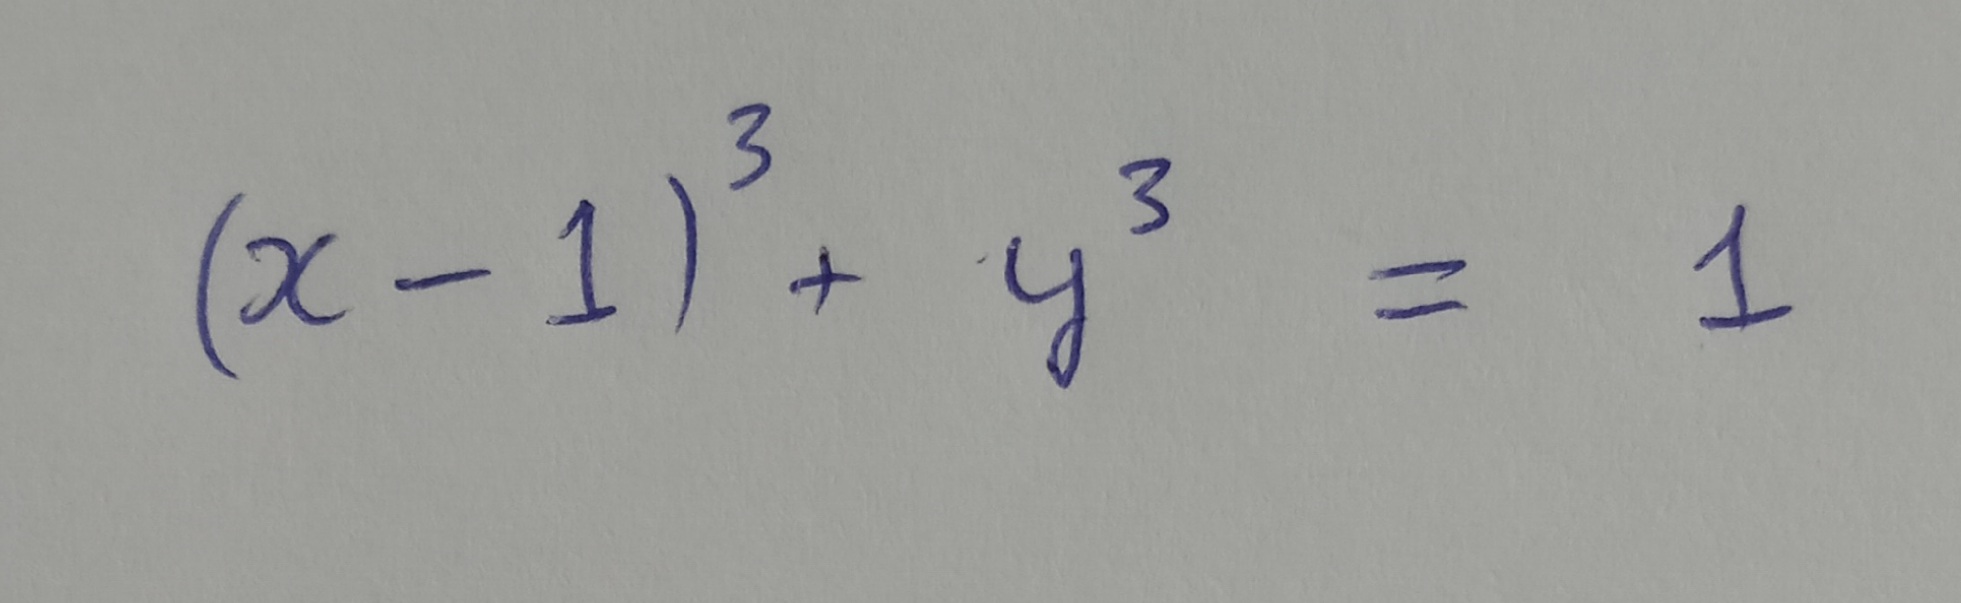 (x - 1)³ + y³ = 1